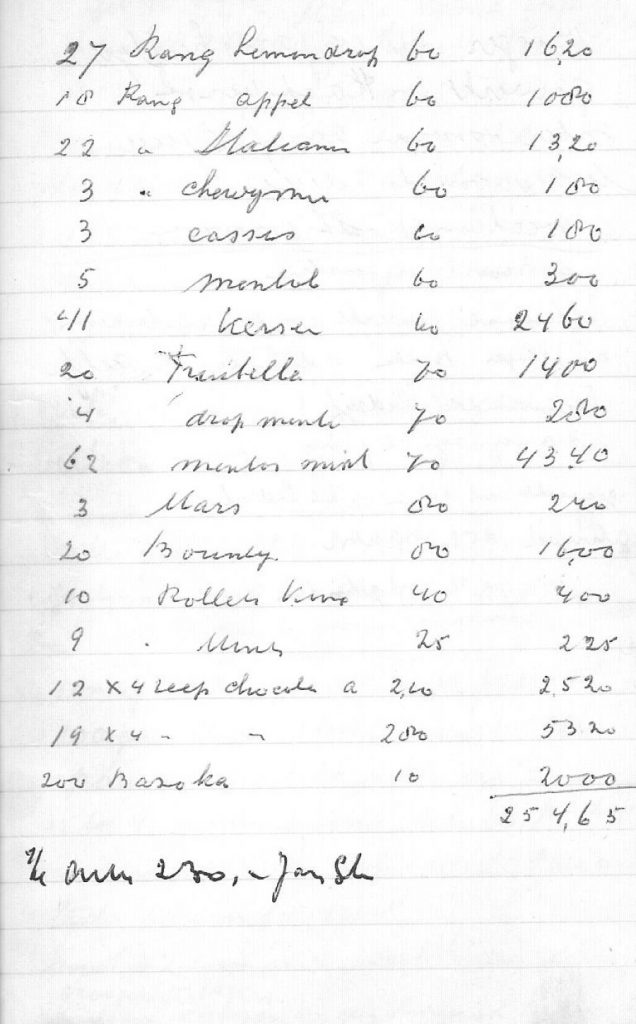 27 Rang Lemondrop 60 16,20
18 Rang appel 60 1080
22 " Italiaan 60 13,20
3 " chewygum 60 180
3 cassis 60 180
5 mentol 60 300
41 Kersen 60 2460
20 Fruitella 70 1400
4 dropmento 70 280
62 mentos mint 70 43,40
3 Mars 80 240
20 Bounty 80 16,00
10 Rollets King 40 400
9 " 25 225
12 x 4 reep chocola a 2,10 2,520
19 x 4 " " 280 5320
200 Bazoka 10 2000
254,65
230,-